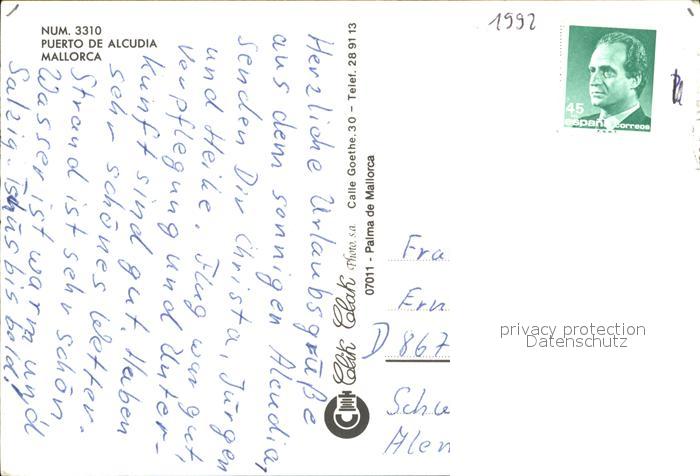 NUM. 3310
PUERTO DE ALCUDIA
MALLORCA
1992
45
españa correos
Herzliche Urlaubsgrüße
aus dem sonnigen Alcudia,
senden Dir Christa, Jürgen
und Heike. Flug war gut,
Verpflegung und Unter-
kunft sind gut. Haben
sehr schönes Wetter.
Strand ist sehr schön.
Wasser ist warm und
Salzig. Tschüs bis bald!
Clik Clak Photo, s.a. Calle Goethe, 30 – Telef. 28 91 13
07011 - Palma de Mallorca
Fra
Ern
D 867
Schw
Alem
privacy protection
Datenschutz